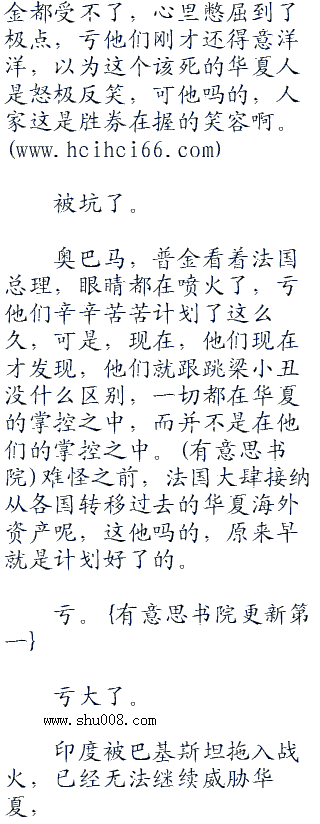 金都受不了，心里憋屈到了
极点，亏他们刚才还得意洋
洋，以为这个该死的华夏人
是怒极反笑，可他吗的，人
家这是胜券在握的笑容啊。
(www.hcihci66.com)
被坑了。
奥巴马，普金看着法国
总理，眼睛都在喷火了，亏
他们辛辛苦苦计划了这么
久，可是，现在，他们现在
才发现，他们就跟跳梁小丑
没什么区别，一切都在华夏
的掌控之中，而并不是在他
们的掌控之中。(有意思书
院)难怪之前，法国大肆接纳
从各国转移过去的华夏海外
资产呢，这他吗的，原来早
就是计划好了的。
亏。{有意思书院更新第
一}
亏大了。
www.shu008.com
印度被巴基斯坦拖入战
火，已经无法继续威胁华
夏，